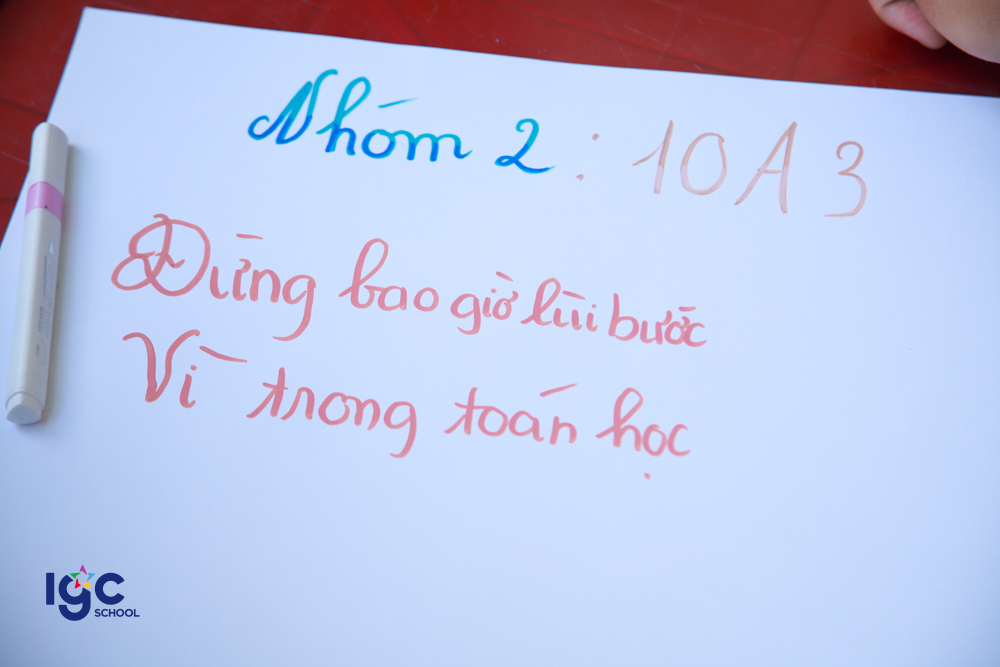 Nhóm 2 : 10A3
Đừng bao giờ lùi bước
Vì trong toán học
IGC
SCHOOL